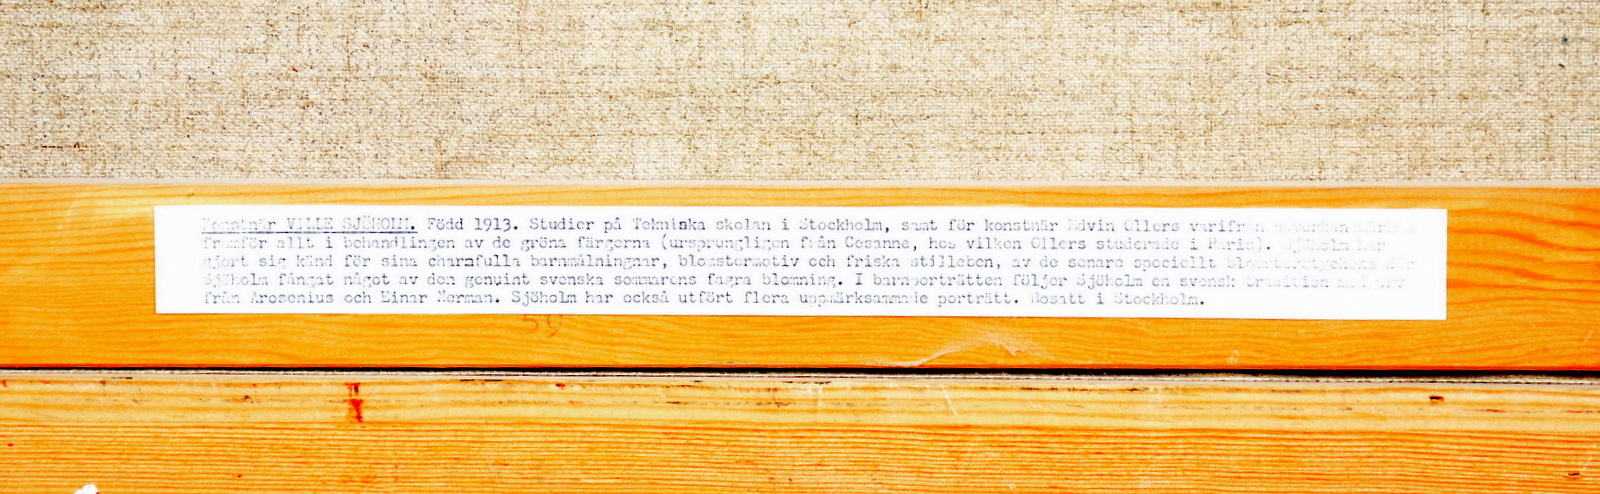 Konstnär VILLE SJÖHOLM. Född 1913. Studier på Tekniska skolan i Stockholm, samt för konstnär Edvin Ollers varifrån
framför allt i behandlingen av de gröna färgerna (ursprungligen från Cesanne, hos vilken Ollers studerade i Paris). Sjöholm har
gjort sig känd för sina charmfulla barnmålningnar, blomstermotiv och friska stilleben, av de senare speciellt
Sjöholm fångat något av den genuint svenska sommarens fagra blomning. I barnporträtten följer Sjöholm en svensk tradition med
från Arosenius och Einar Nerman. Sjöholm har också utfört flera uppmärksammade porträtt. Bosatt i Stockholm.
59